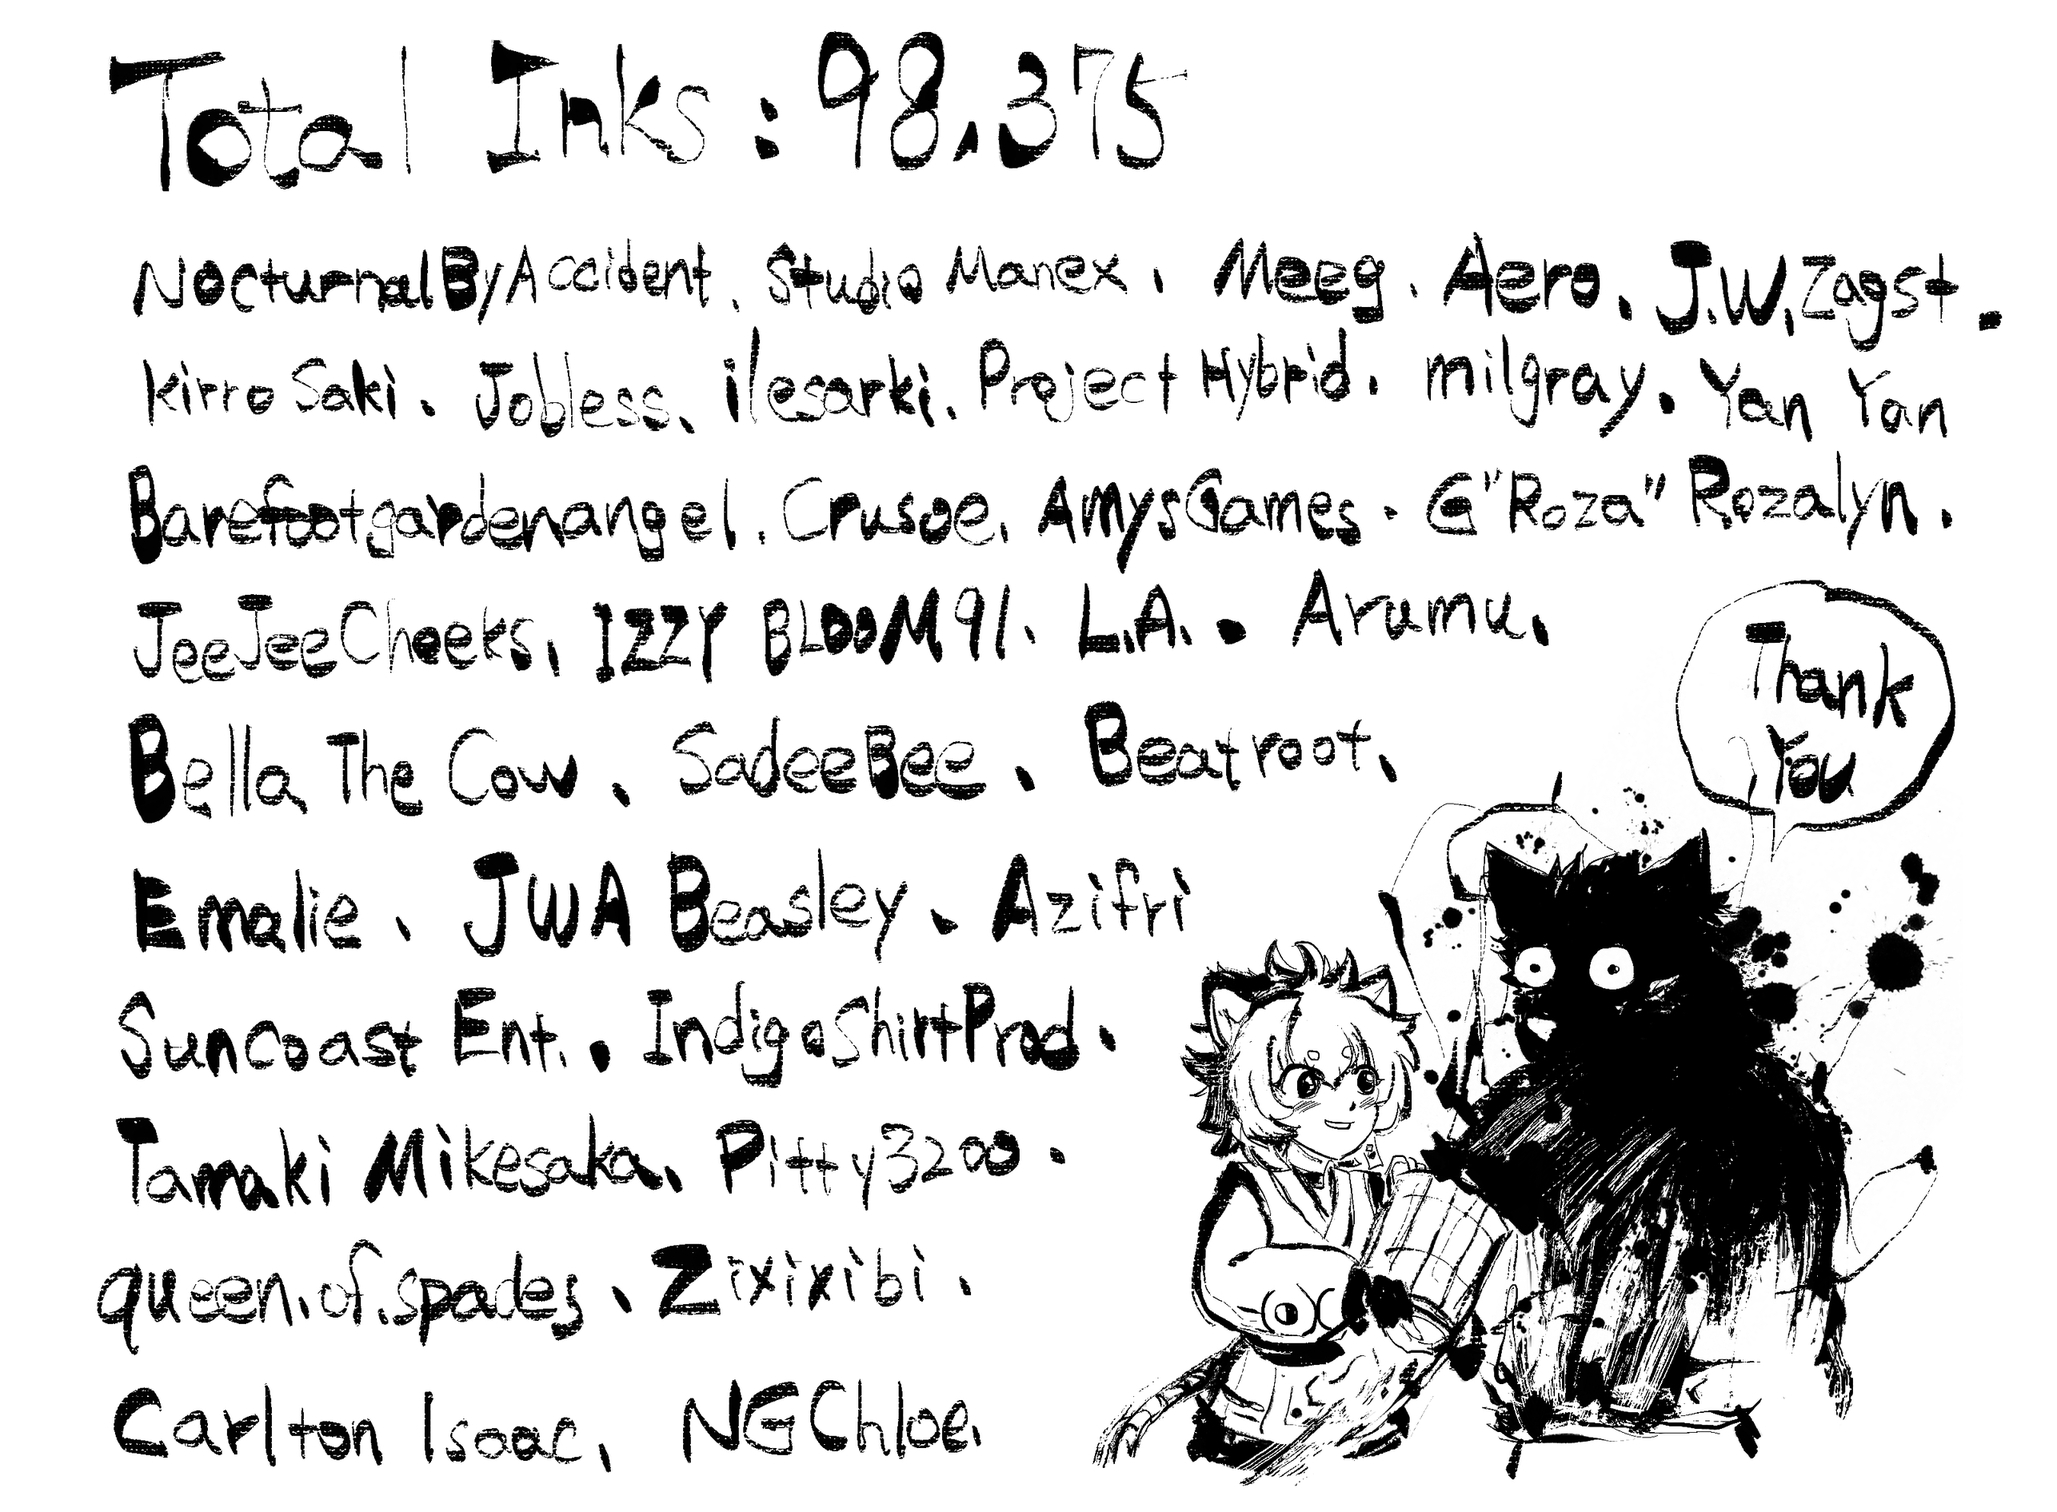 Total Inks : 98,375
NocturnalByAccident, Studio Manex, Meeg, Aero, J.W.Zagst.
Kirro Saki, Jobless, ilesarki, Project Hybrid, milgray, Yan Yan
Barefootgardenangel, Crusoe, AmysGames, G"Roza" Rozalyn,
JeeJeeCheeks, IZZY BLOOM91, L.A., Arumu,
Bella The Cow, SadeeBee, Beatroot,
Emalie, JWA Beasley, Azifri
Suncoast Ent., IndigoShirtProd,
Tamaki Mikesaka, Pitty3200,
queen.of.spades, Zixixibi,
Carlton Isaac, NGChloe,
Thank
You